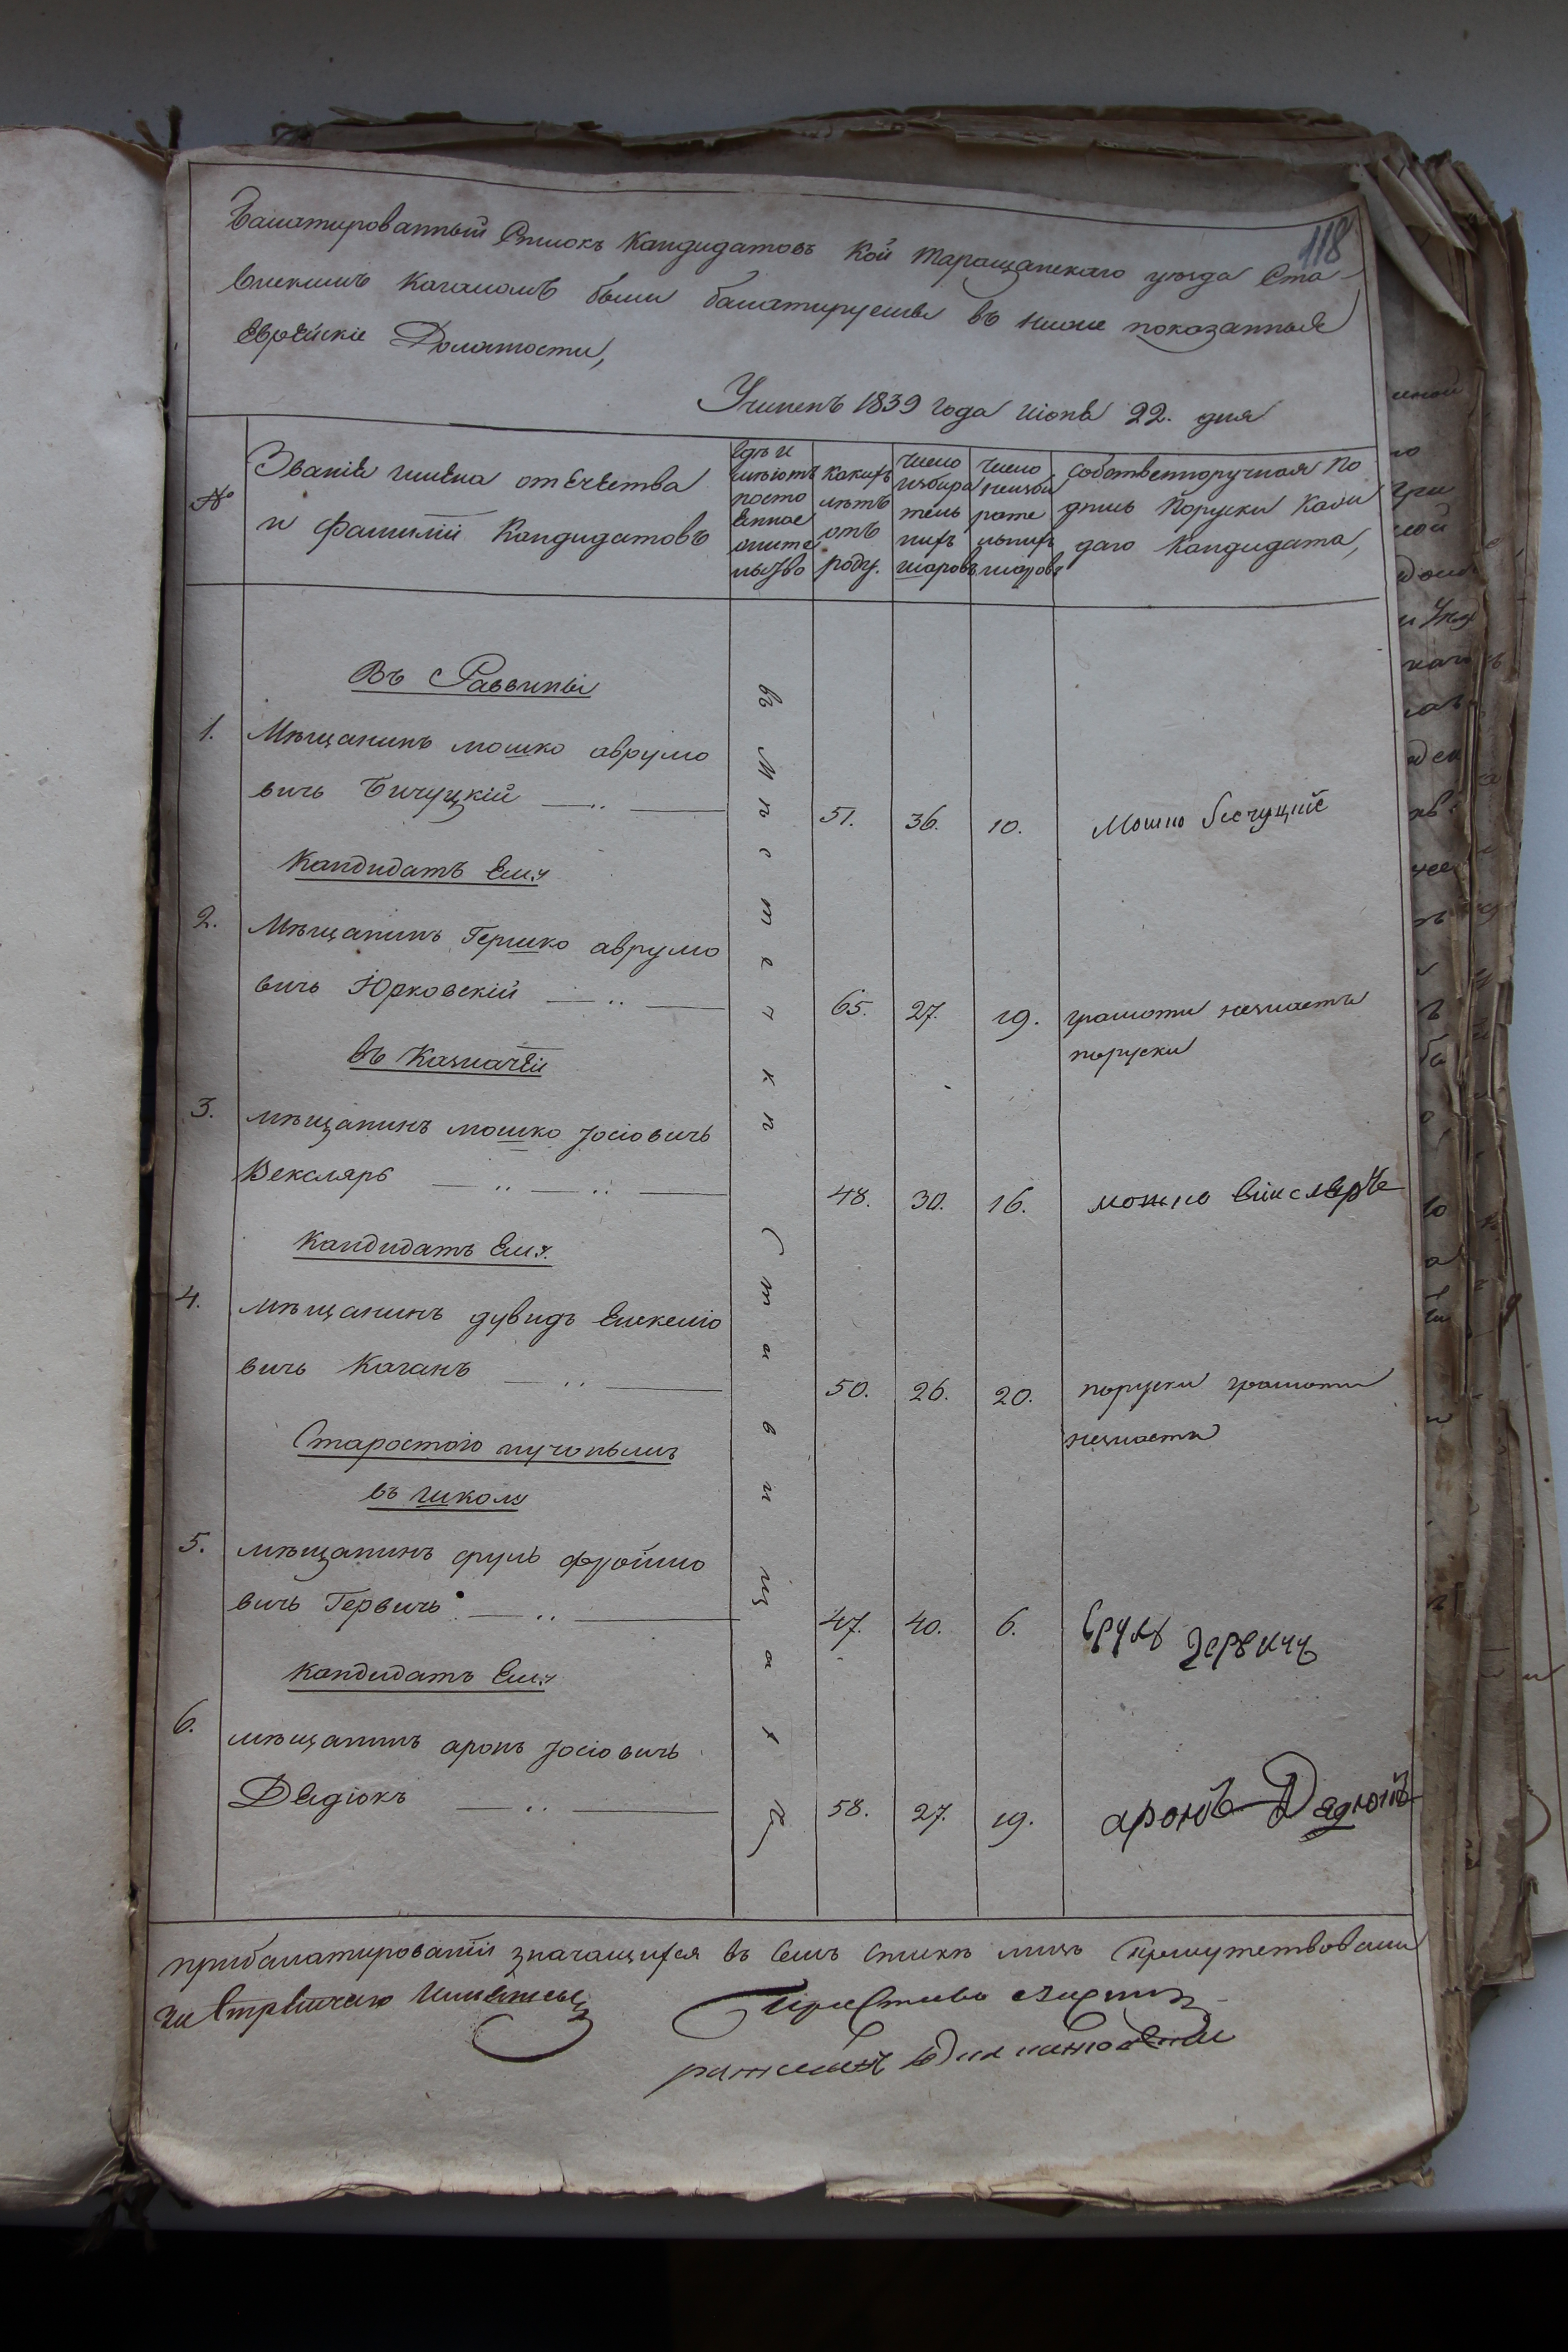 118
Баллатированный Списокъ Кандидатовъ Кои Таращанскаго уѣзда Ста-
вискимъ Кагаломъ были баллатируемы въ ниже показанныя
Еврейскіе Должности,
Учиненъ 1839 года іюня 22. дня
№
Званіе имена отечества
и Фамиліи Кандидатовъ
гдѣ и
имѣютъ
посто
енное
жите
льство
какихъ
лѣтъ
отъ
роду.
число
избира
тель
нихъ
шаровъ
число
неизби
рате
льнихъ
шаровъ
собственноручная по
дпись Поруски Каж
даго Кандидата,
Въ Раввины
1. Мѣщанинъ мошко аврумо
вичь Бичуцкій 51. 36. 10. Мошко бичуцкій
Кандидатъ Ему
2. Мѣщанинъ Гершко аврумо
вичь Юрковскій 65. 27. 19. грамоти незнаетъ
поруски
въ Казначеи
3. мѣщанинъ мошко Іосіовичь
Векслярь 48. 30. 16. мошко
Кандидатъ Ему.
4. мѣщанинъ дувидъ
вичь Каганъ 50. 26. 20. поруски грамоти
незнаетъ
Старостою
въ школу
5. мѣщанинъ сруль фроимо
вичь Гервичь 47. 40. 6. Сруль Гервичъ
Кандидатъ Ему
6. мѣщанинъ аронъ Іосіовичь
Дедюкъ 58. 27. 19. аронъ Дедюкъ
въ Мѣстечкѣ Ставищахъ
прибаллатированіи значащихся въ семъ спискѣ лицъ Присутствовали